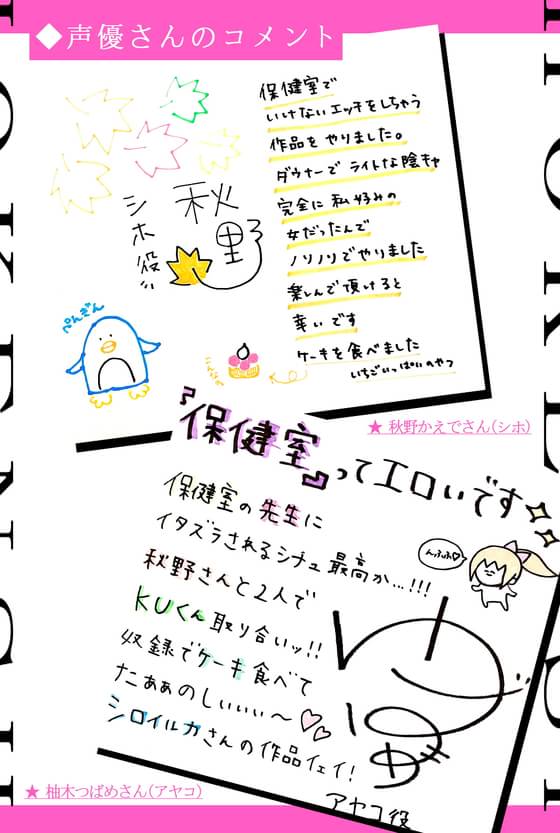 ◆声優さんのコメント
保健室で
いけないエッチをしちゃう
作品を やりました。
ダウナーで ライトな陰キャ
完全に 私好みの
女だったんで
ノリノリでやりました
楽しんで頂けると
幸いです
ケーキを食べました
いちごいっぱいのやつ
シホ役!!
ぺんぎん
★ 秋野かえでさん(シホ)
『保健室』ってエロいです
保健室の先生に
イタズラされるシチュ最高か…!!!
んふふ♡
秋野さんと2人で
KUくん取り合いッ!!
収録でケーキ食べて
たぁぁのしぃぃぃ〜♡♡
シロイルカさんの作品イェイ!
アヤコ役
★ 柚木つばめさん(アヤコ)